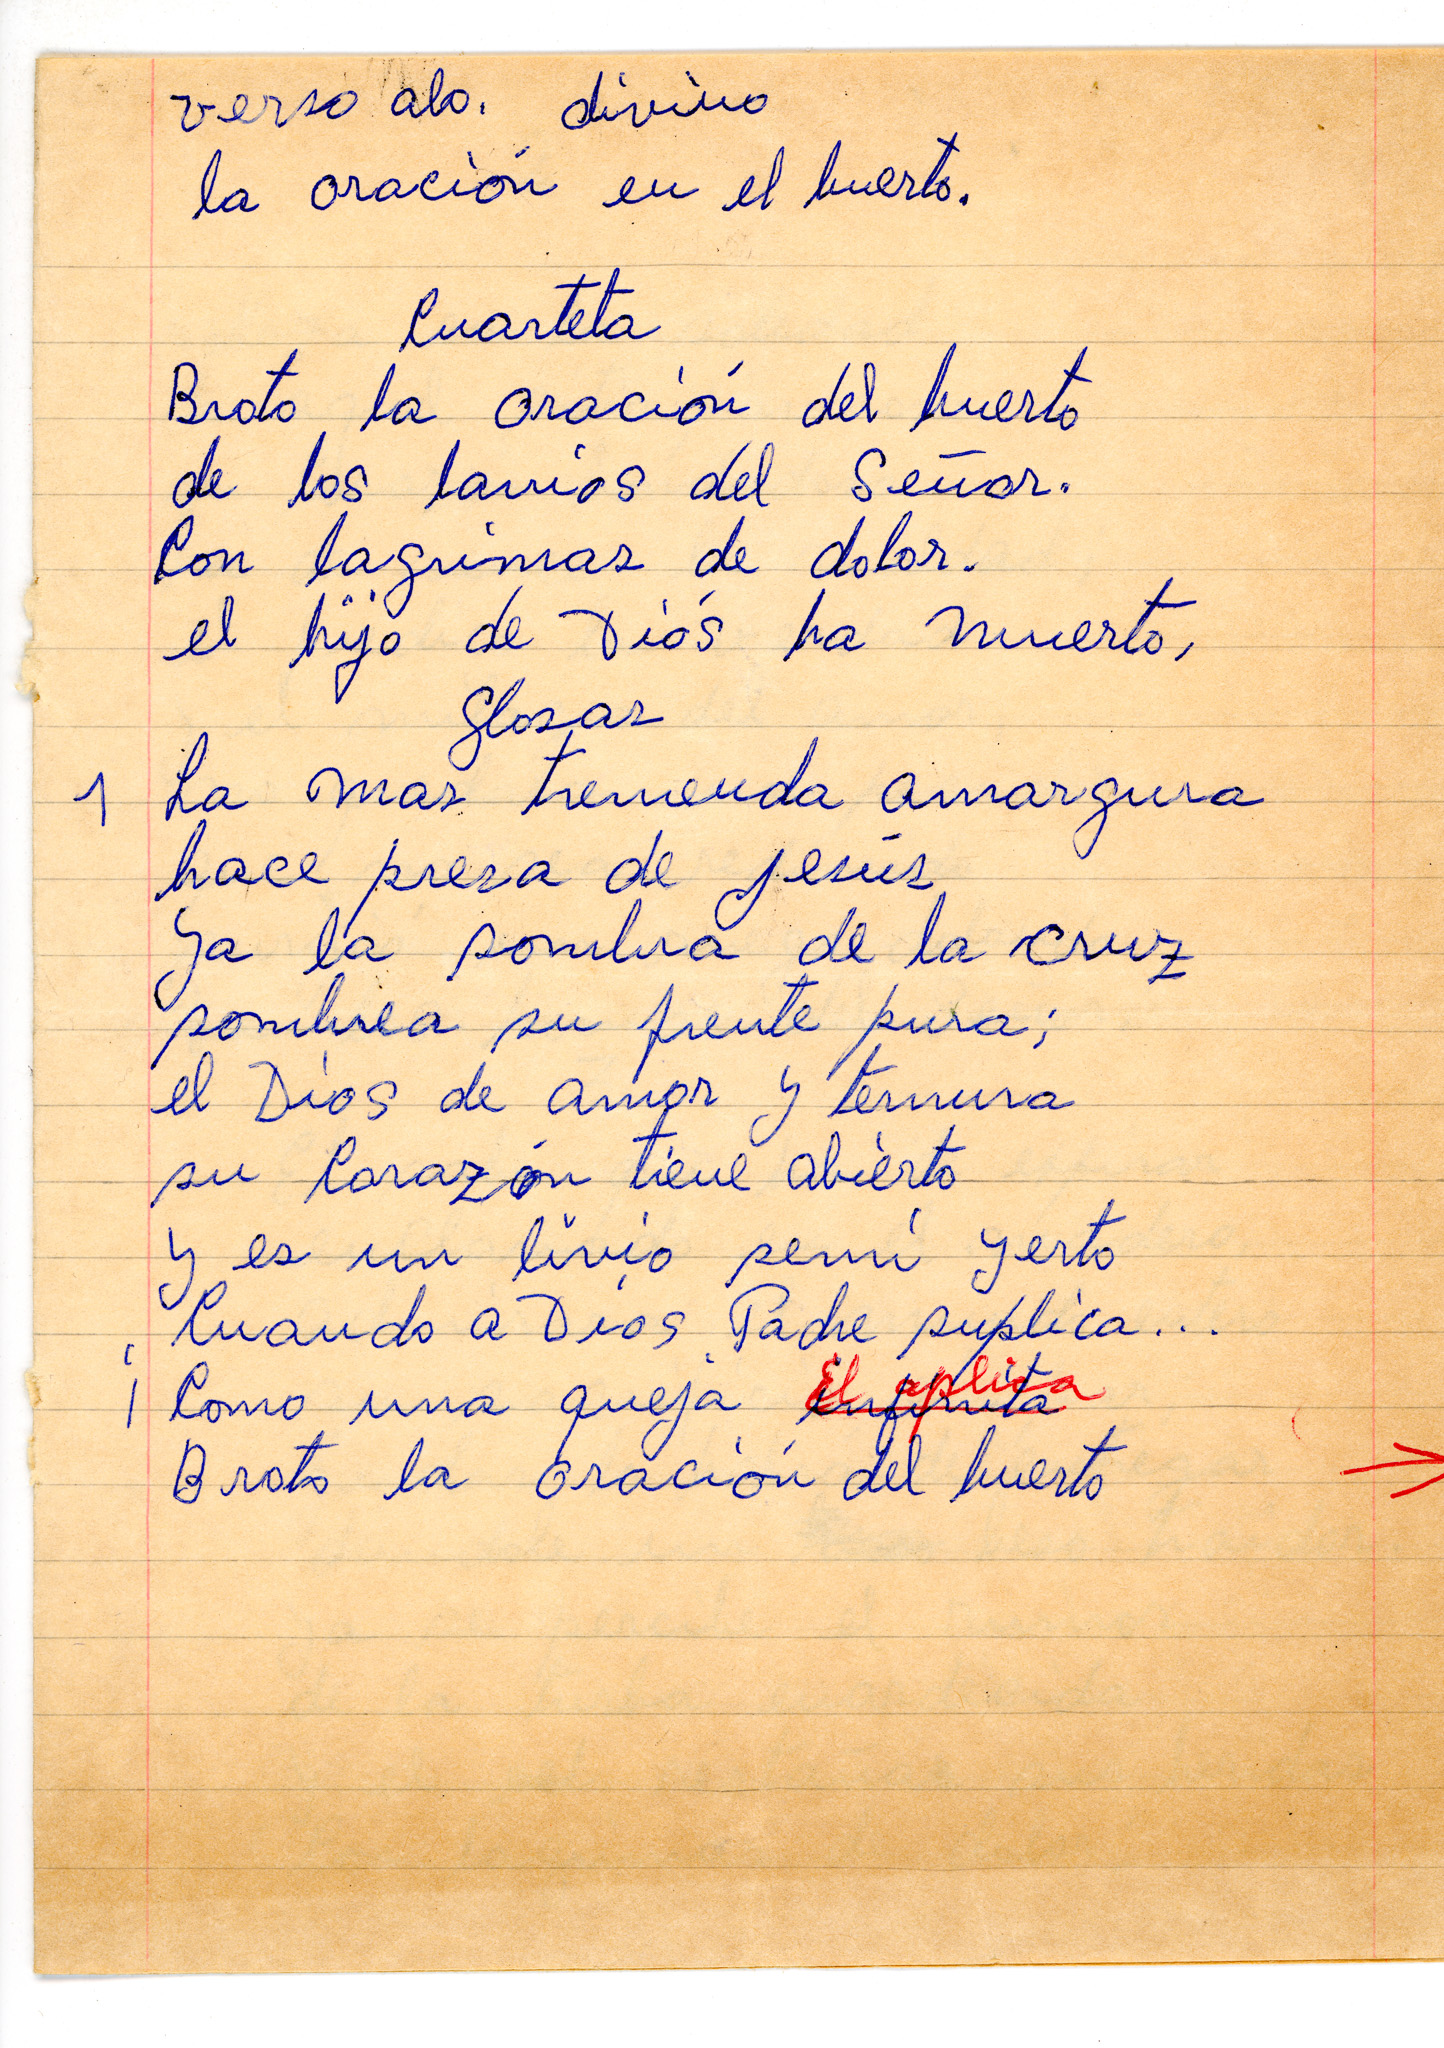 verso alo. divino
la oración en el huerto.
Cuarteta
Broto la oración del huerto
de los lavios del Señor.
Con lagrimas de dolor.
el hijo de Diós ha muerto,
Glosas
1 La mas tremenda amargura
hace presa de Jesús
Ya la sombra de la cruz
sombrea su frente pura;
el Dios de amor y ternura
su Corazón tiene abierto
y es un livio semi yerto
Cuando a Dios Padre suplica...
¡ Como una queja infinita El aplica
Broto la oración del huerto